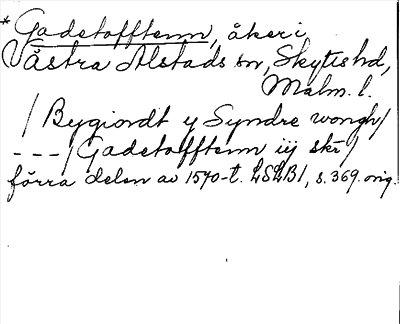 * Gadetofftenn, åker i
Västra Alstads sn, Skytts hd,
Malm. l.
/ Bygiordt y Syndre wongh /
--- / Gadetofftenn iij skr /
förra delen av 1570-t. LSLB1, s. 369. orig.